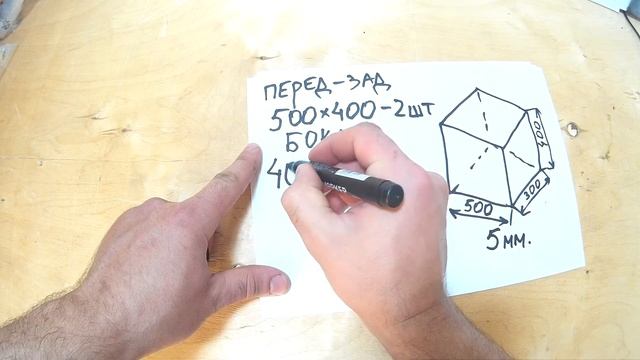 ПЕРЕД-ЗАД
500×400-2шт
40
400
300
500
5мм.